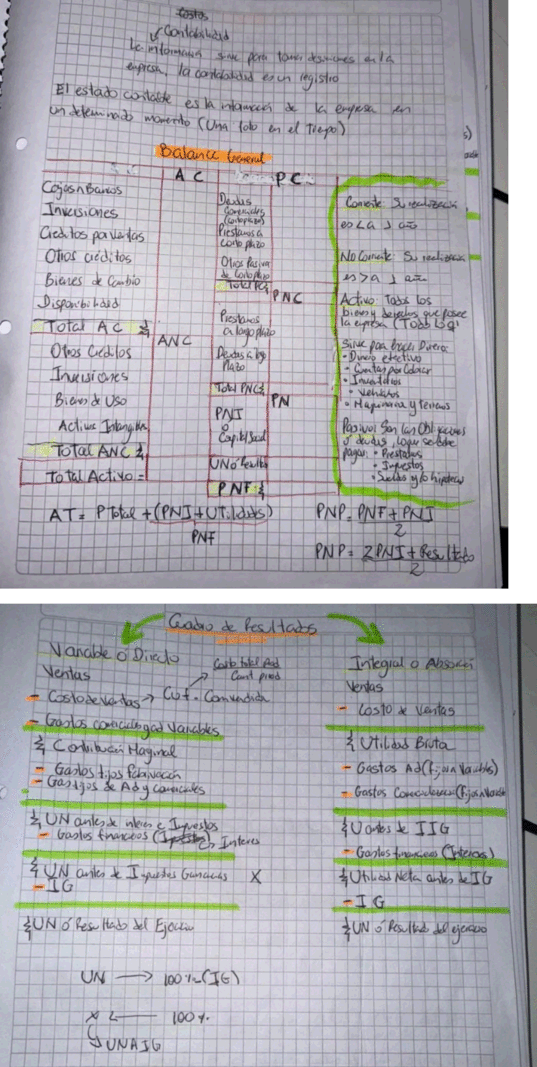 Costos
Contabilidad
La información sirve para tomar desiciones en la
empresa, la contabilidad es un registro
El estado contable es la información de la empresa en
un determinado momento (Una foto en el tiempo)
Balance General
A C
Caja y Bancos
Inversiones
Creditos por Ventas
Otros créditos
Bienes de Cambio
Disponibilidad
Total AC
ANC
Otros Creditos
Inversiones
Bienes de Uso
Activos Intangibles
Total ANC
Total Activo =
P C
Deudas
Comerciales
(corto plazo)
Prestamos a
Corto plazo
Otros Pasivos
de Corto plazo
Total PC
PNC
Prestamos
a largo plazo
Deudas a largo
Plazo
Total PNC
PN
PNI
o
Capital Social
UN ó Resultado
PNF
Corriente: Su realización
es < a 1 año
No Corriente: Su realización
es > a 1 año
Activo: Todos los
bienes y derechos que posee
la empresa (Todo lo q'
Sirve para hacer Dinero:
• Dinero efectivo
• Cuentas por Cobrar
• Inventarios
• Vehiculos
• Maquinaria y Terrenos
Pasivo: Son las Obligaciones
ó deudas, lo que se debe
pagar: • Prestamos
• Impuestos
• Sueldos y/o hipotecas
AT = P Total + (PNI + Utilidades)
PNF
PNP = PNF + PNI
2
PNP = 2PNI + Resultado
2
Cuadro de Resultados
Variable ó Directo
Ventas
Costo total Ad
Cant prod
- Costo de Ventas → Cuf. Cant vendida
- Gastos comercializac Variables
Contribución Marginal
- Gastos fijos Fabricación
- Gas fijos de Ad y comerciales
UN antes de interes e Impuestos
- Gastos financieros Interes
UN antes de Impuestos Ganancias X
- IG
UN ó Resultado del Ejercicio
UN → 100%-(IG)
x ← 100%
UNAIG
Integral o Absorción
Ventas
- Costo de Ventas
Utilidad Bruta
- Gastos Ad (fijos n Variables)
- Gastos Comercialización (fijos n Variables
U antes de IIG
- Gastos financieros (Interes)
Utilidad Neta antes de IG
- IG
UN ó Resultado del ejercicio